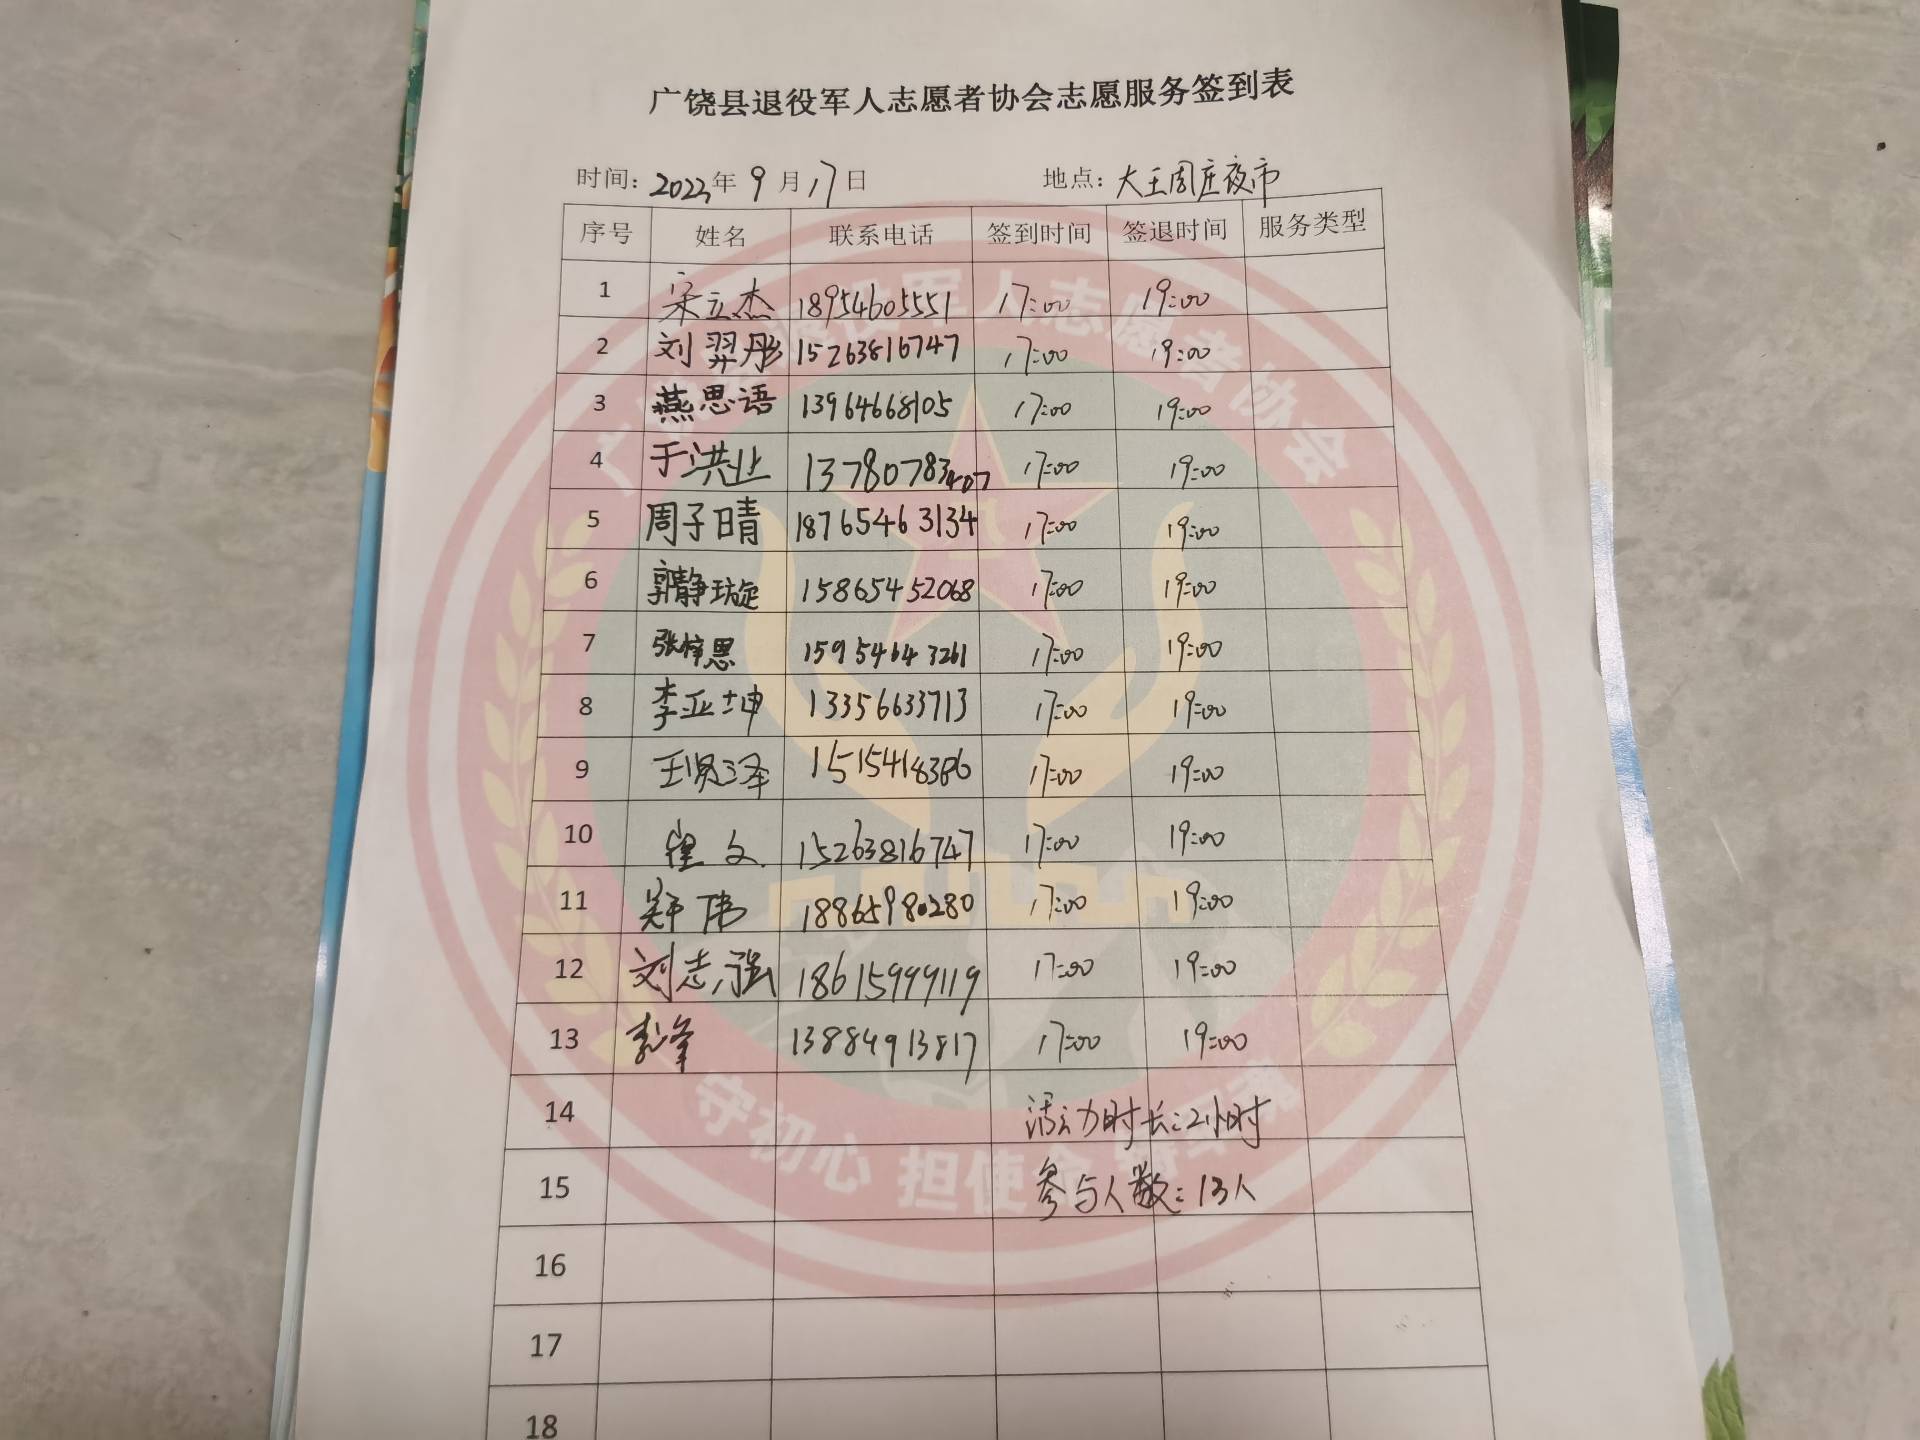 广饶县退役军人志愿者协会志愿服务签到表
时间：2023年9月17日 地点：大王周庄夜市
序号 姓名 联系电话 签到时间 签退时间 服务类型
1 宋立杰 18954605551 17:00 19:00
2 刘羿彤 15263816747 17:00 19:00
3 燕思语 13964668105 17:00 19:00
4 于洪业 13780783407 17:00 19:00
5 周子晴 18765463134 17:00 19:00
6 郭静璇 15865452068 17:00 19:00
7 张梓思 15954643261 17:00 19:00
8 李亚坤 13356633713 17:00 19:00
9 王贤泽 15154148386 17:00 19:00
10 崔文 15263816747 17:00 19:00
11 郑伟 18865980280 17:00 19:00
12 刘志强 18615999119 17:00 19:00
13 李峰 13884913817 17:00 19:00
14 活动时长：2小时
15 参与人数：13人
16
17
18
军人志愿者协会
守初心 担使命